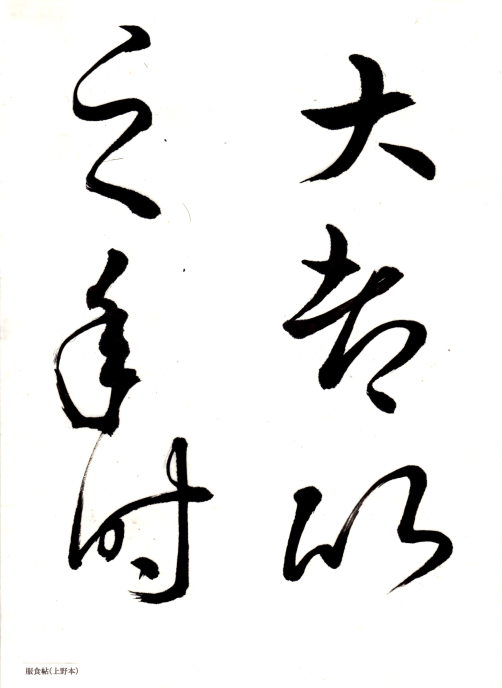 大都比
之年時
服食帖(上野本)